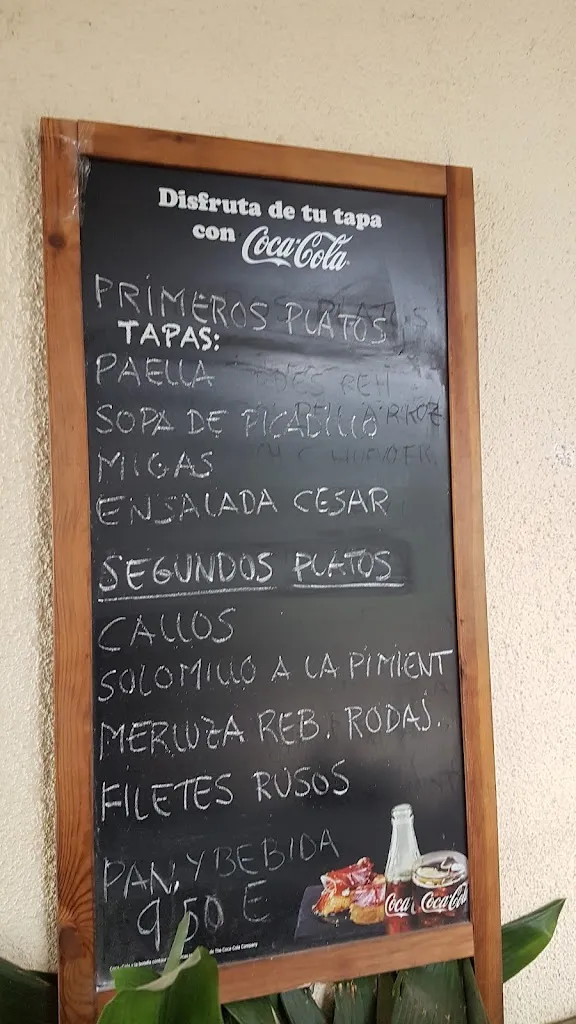 Disfruta de tu tapa
con Coca-Cola
PRIMEROS PLATOS
TAPAS:
PAELLA
SOPA DE PICADILLO
MIGAS
ENSALADA CESAR
SEGUNDOS PLATOS
CALLOS
SOLOMILLO A LA PIMIENT
MERLUZA REB. RODAJ.
FILETES RUSOS
PAN, Y BEBIDA
9,50 E
Coca Coca-Cola
de The Coca-Cola Company